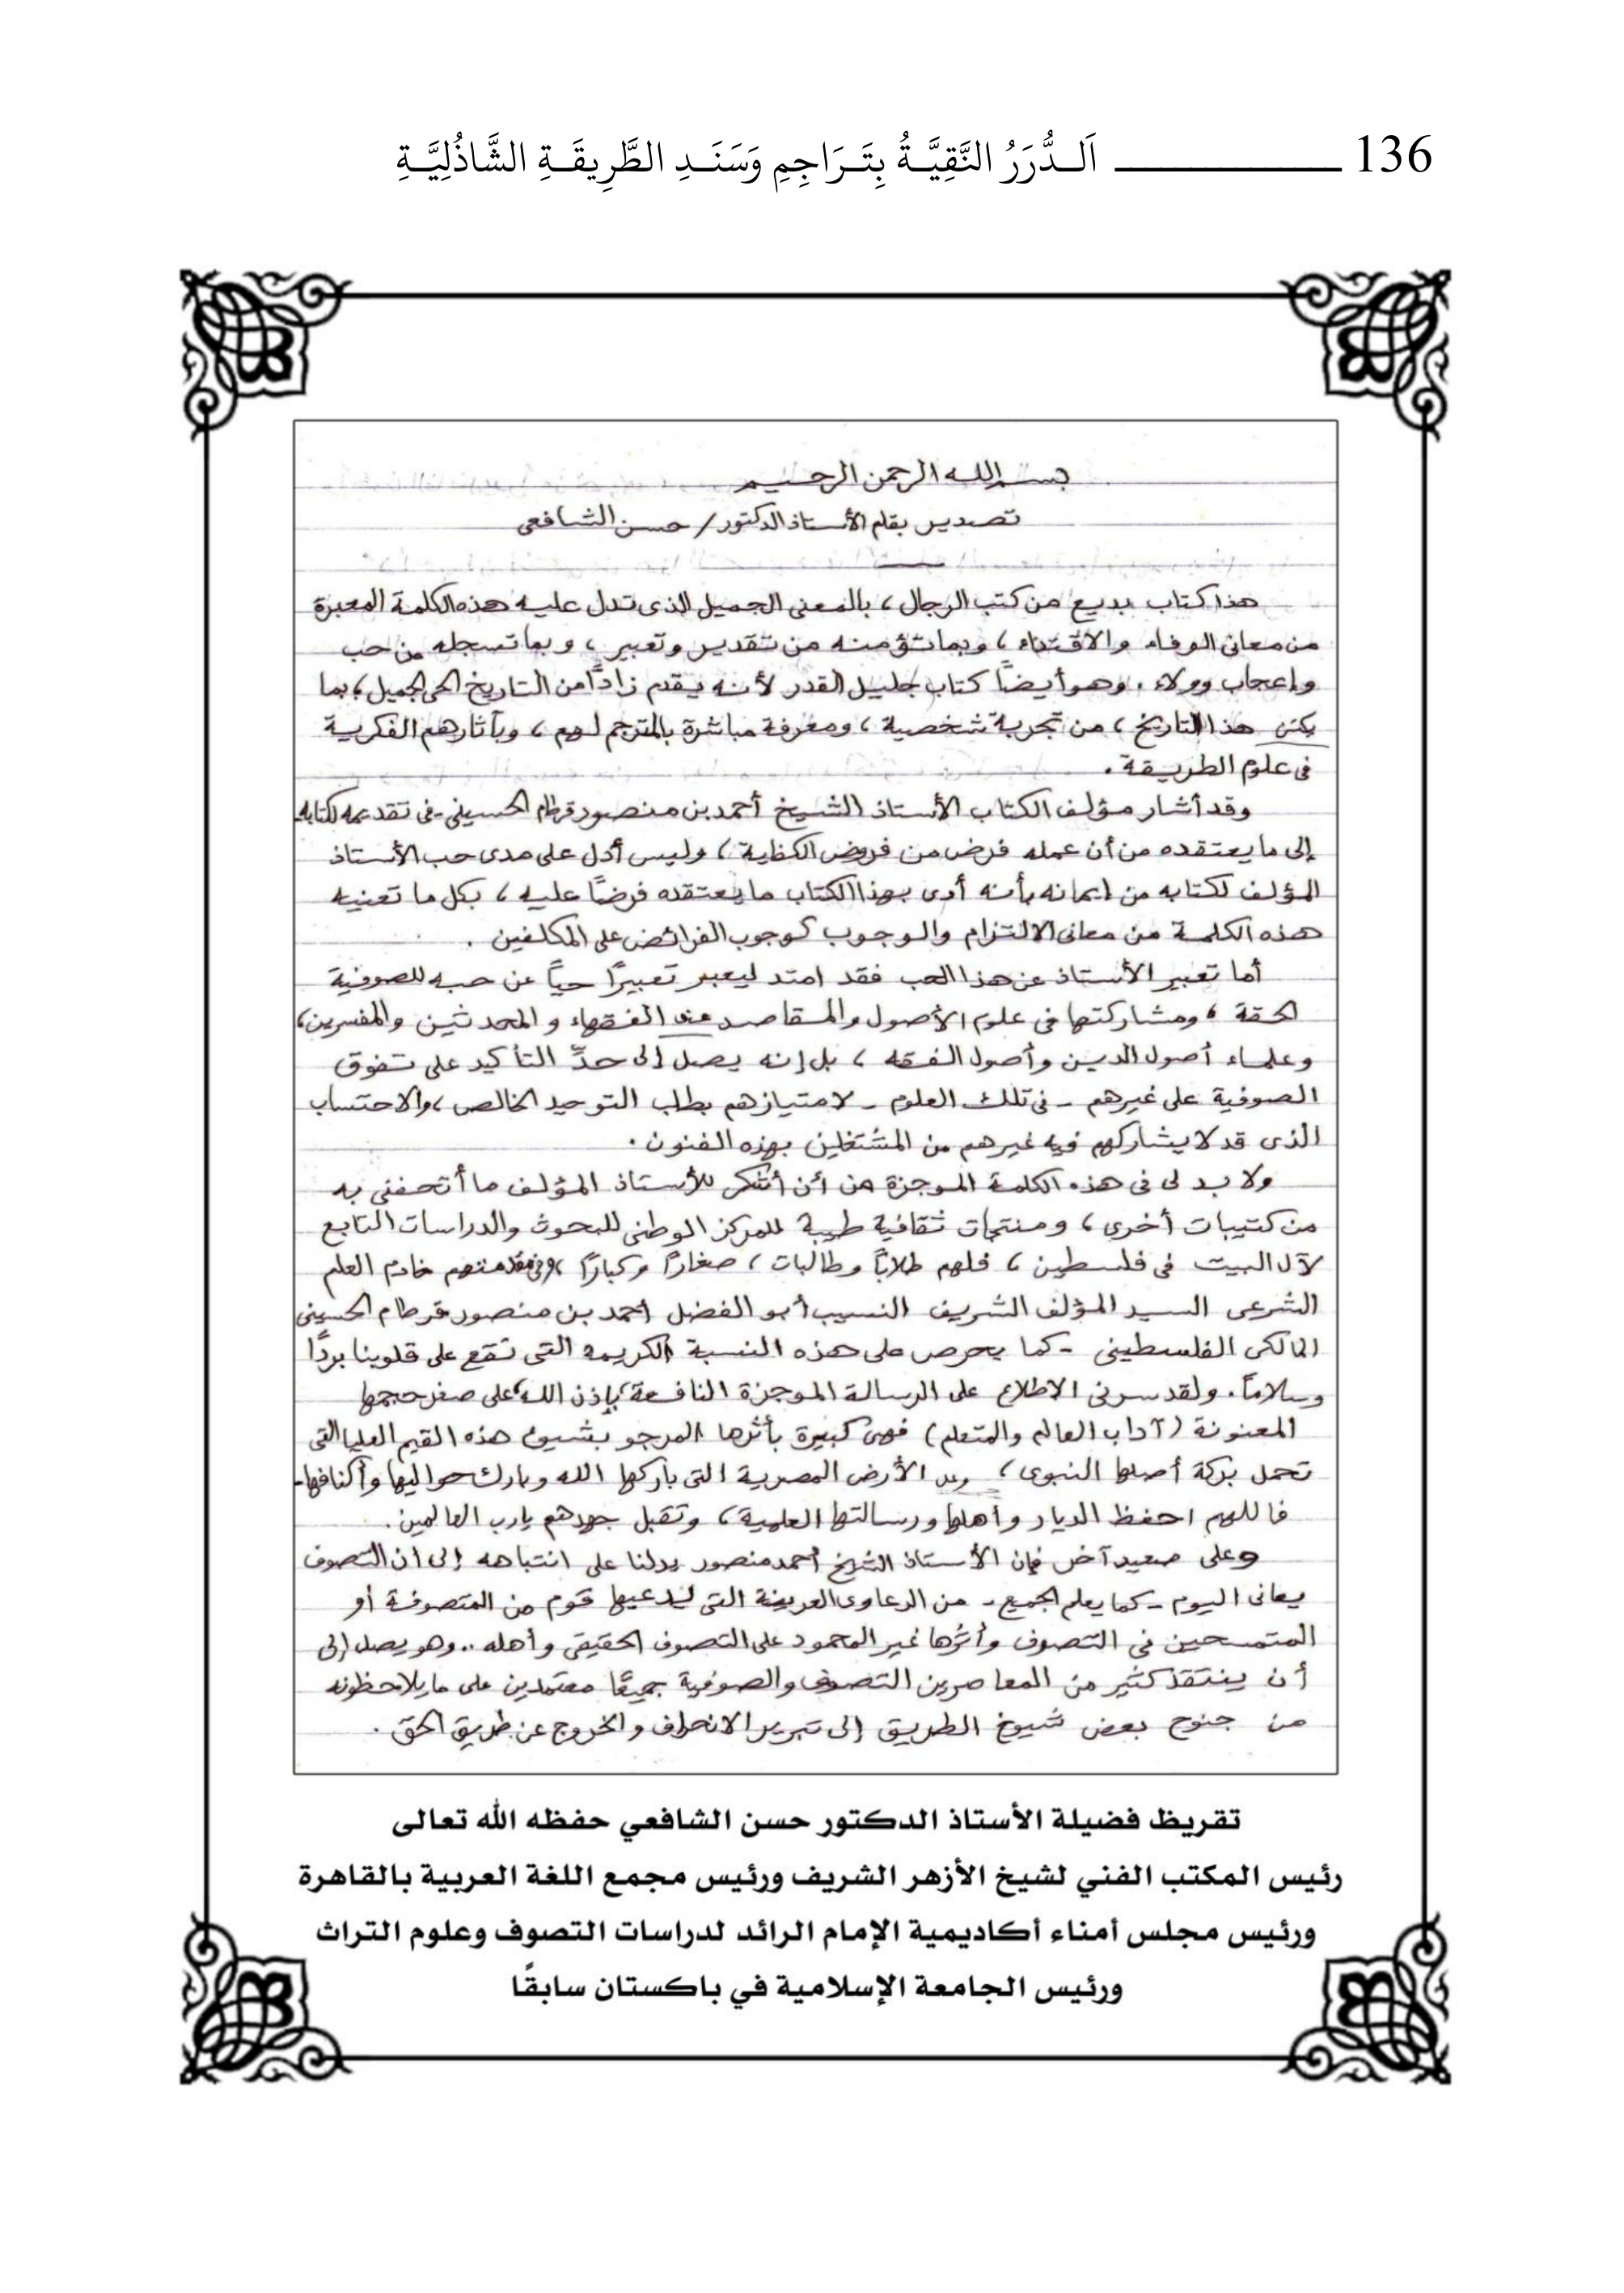 136 اَلــدُّرَرُ النَّقِيَّــةُ بِتَــرَاجِمِ وَسَنَــدِ الطَّرِيقَــةِ الشَّاذُلِيَّــةِ
بسم الله الرحمن الرحيم
تصدير بقلم الأستاذ الدكتور/ حسن الشافعى
هذا كتاب بديع من كتب الرجال، بالمعنى الجميل الذى تدل عليه هذه الكلمة المعبرة
من معانى الوفاء والاقتداء، وبما من تقدير وتعبير، وبما تسجله من حب
وإعجاب وولاء. وهو أيضاً كتاب جليل القدر لأنه يقدم زاداً من التاريخ الحى الجميل؛ بما
هذا التاريخ، من تجربة شخصية، ومعرفة مباشرة بالمترجم لهم، وبآثارهم الفكرية
فى علوم الطريقة.
وقد أشار مؤلف الكتاب الأستاذ الشيخ أحمد بن منصور قرطام الحسينى - فى تقدمه لكتابه -
إلى ما يعتقده من أن عمله فرض من فروض الكفاية، وليس أدل على مدى حب الأستاذ
المؤلف لكتابه من إيمانه بأنه أدى بهذا الكتاب ما يعتقده فرضاً عليه، بكل ما تعنيه
هذه الكلمة من معانى الالتزام والوجوب كوجوب الفرائض على المكلفين.
أما تعبير الأستاذ عن هذا الحب فقد امتد ليعبر تعبيراً حياً عن حبه للصوفية
الحقة، ومشاركتها فى علوم الأصول والمقاصد عند الفقهاء والمحدثين والمفسرين،
وعلماء أصول الدين وأصول الفقه، بل إنه يصل إلى حدّ التأكيد على تفوق
الصوفية على غيرهم - فى تلك العلوم - لامتيازهم بطلب التوحيد الخالص، والاحتساب
الذى قد لا يشاركهم فيه غيرهم من المشتغلين بهذه الفنون.
ولا بد لى فى هذه الكلمة الموجزة من أن أشكر للأستاذ المؤلف ما أتحفنى به
من كتيبات أخرى، ومنتجات ثقافية طيبة للمركز الوطنى للبحوث والدراسات التابع
لآل البيت فى فلسطين، فلهم طلاباً وطالبات، صغاراً وكباراً، وفى مقدمتهم خادم العلم
الشرعى السيد المؤلف الشريف النسيب أبو الفضل أحمد بن منصور قرطام الحسينى
المالكى الفلسطينى - كما يحرص على هذه النسبة الكريمة التى تقع على قلوبنا برداً
وسلاماً. ولقد سرنى الاطلاع على الرسالة الموجزة النافعة بإذن الله على صغر حجمها
المعنونة (آداب العالم والمتعلم) فهى كبيرة بأثرها المرجو بشيوع هذه القيم العليا التى
تحمل بركة أصلها النبوى، الأرض المصرية التى باركها الله وبارك حواليها وأكنافها -
فاللهم احفظ الديار وأهلها ورسالتها العلمية، وتقبل جهدهم يارب العالمين.
وعلى صعيد آخر فإن الأستاذ الشيخ أحمد منصور يدلنا على انتباهه إلى أن التصوف
يعانى اليوم - كما يعلم الجميع - من الدعاوى العريضة التى يدعيها قوم من المتصوفة أو
المتمسحين فى التصوف وأثرها غير المحمود على التصوف الحقيقى وأهله .. وهو يصل إلى
أن ينتقد كثير من المعاصرين التصوف والصوفية جميعاً معتمدين على ما يلاحظونه
من جنوح بعض شيوخ الطريق إلى تبرير الانحراف والخروج عن طريق الحق.
تقريظ فضيلة الأستاذ الدكتور حسن الشافعي حفظه الله تعالى
رئيس المكتب الفني لشيخ الأزهر الشريف ورئيس مجمع اللغة العربية بالقاهرة
ورئيس مجلس أمناء أكاديمية الإمام الرائد لدراسات التصوف وعلوم التراث
ورئيس الجامعة الإسلامية في باكستان سابقًا